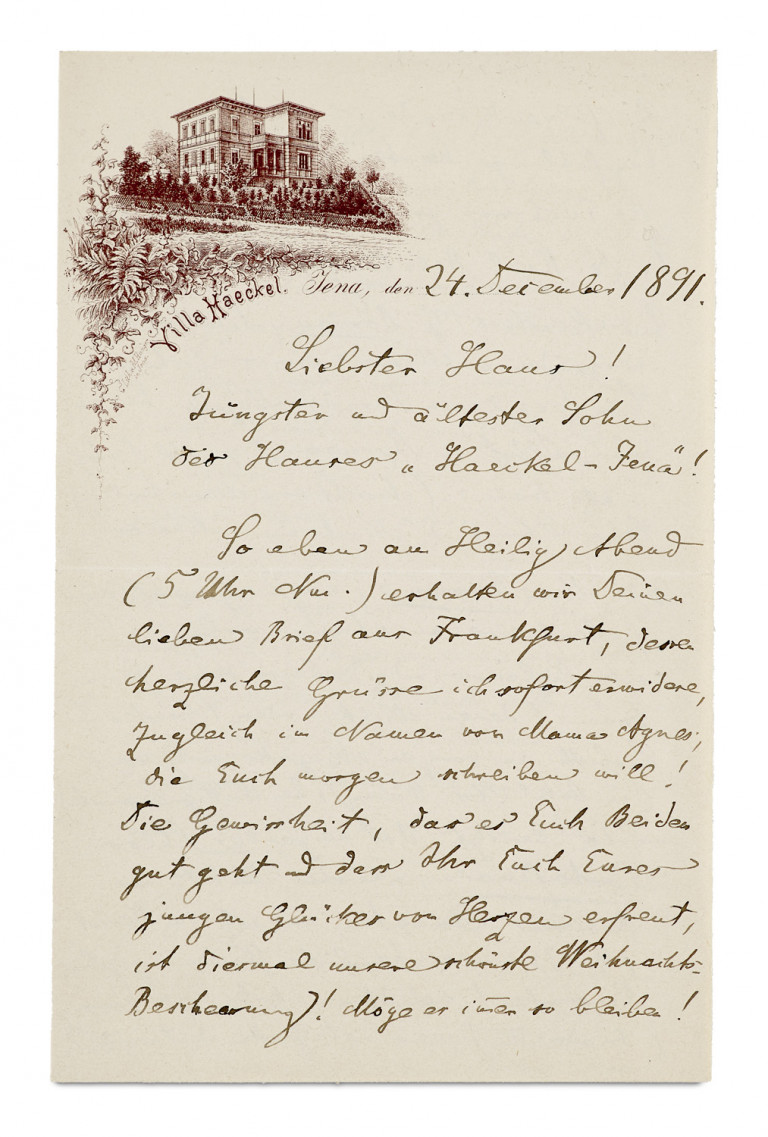 Villa Haeckel. Jena, den 24. December 1891.
Liebster Hans!
Jüngster und ältester Sohn
des Hauses „Haeckel-Jena"!
So eben am Heilig Abend
(5 Uhr Nm.) erhalten wir Deinen
lieben Brief aus Frankfurt, dessen
herzliche Grüsse ich sofort erwidere,
zugleich im Namen von Mama Agnes,
die Euch morgen schreiben will!
Die Gewissheit, dass es Euch Beiden
gut geht und dass Ihr Euch Eures
jungen Glückes von Herzen erfreut,
ist diesmal unsere schönste Weihnachts-
Bescheerung! Möge es im̄er so bleiben!